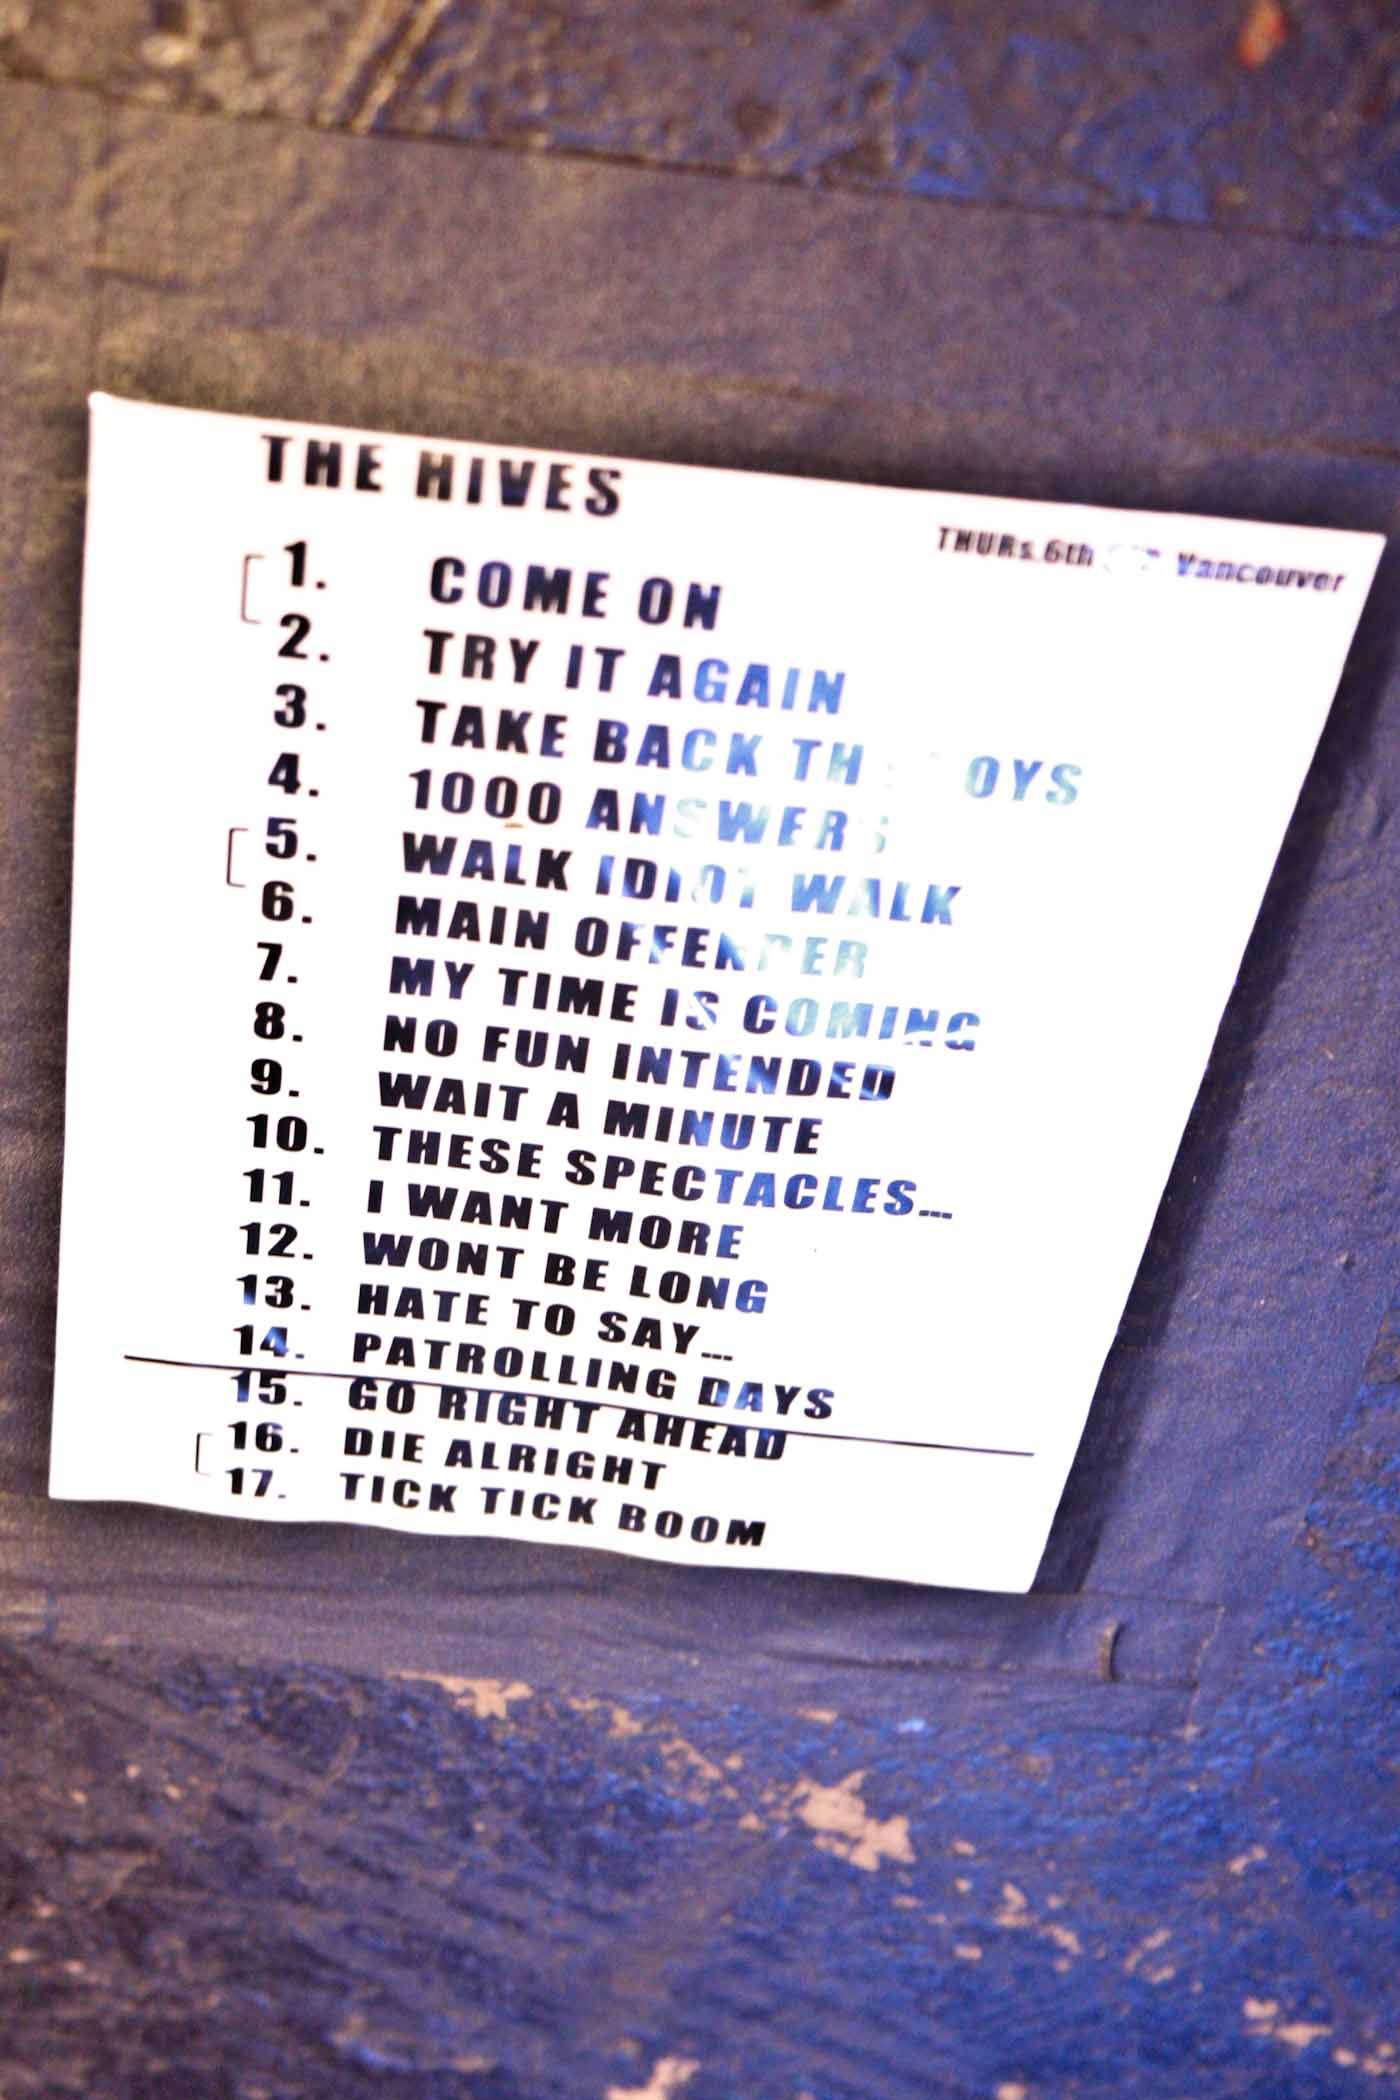 THE HIVES
THURs.6th Vancouver
1. COME ON
2. TRY IT AGAIN
3. TAKE BACK
4. 1000 ANSWERS
5. WALK IDIOT WALK
6. MAIN OFFENDER
7. MY TIME IS COMING
8. NO FUN INTENDED
9. WAIT A MINUTE
10. THESE SPECTACLES...
11. I WANT MORE
12. WONT BE LONG
13. HATE TO SAY...
14. PATROLLING DAYS
15. GO RIGHT AHEAD
16. DIE ALRIGHT
17. TICK TICK BOOM